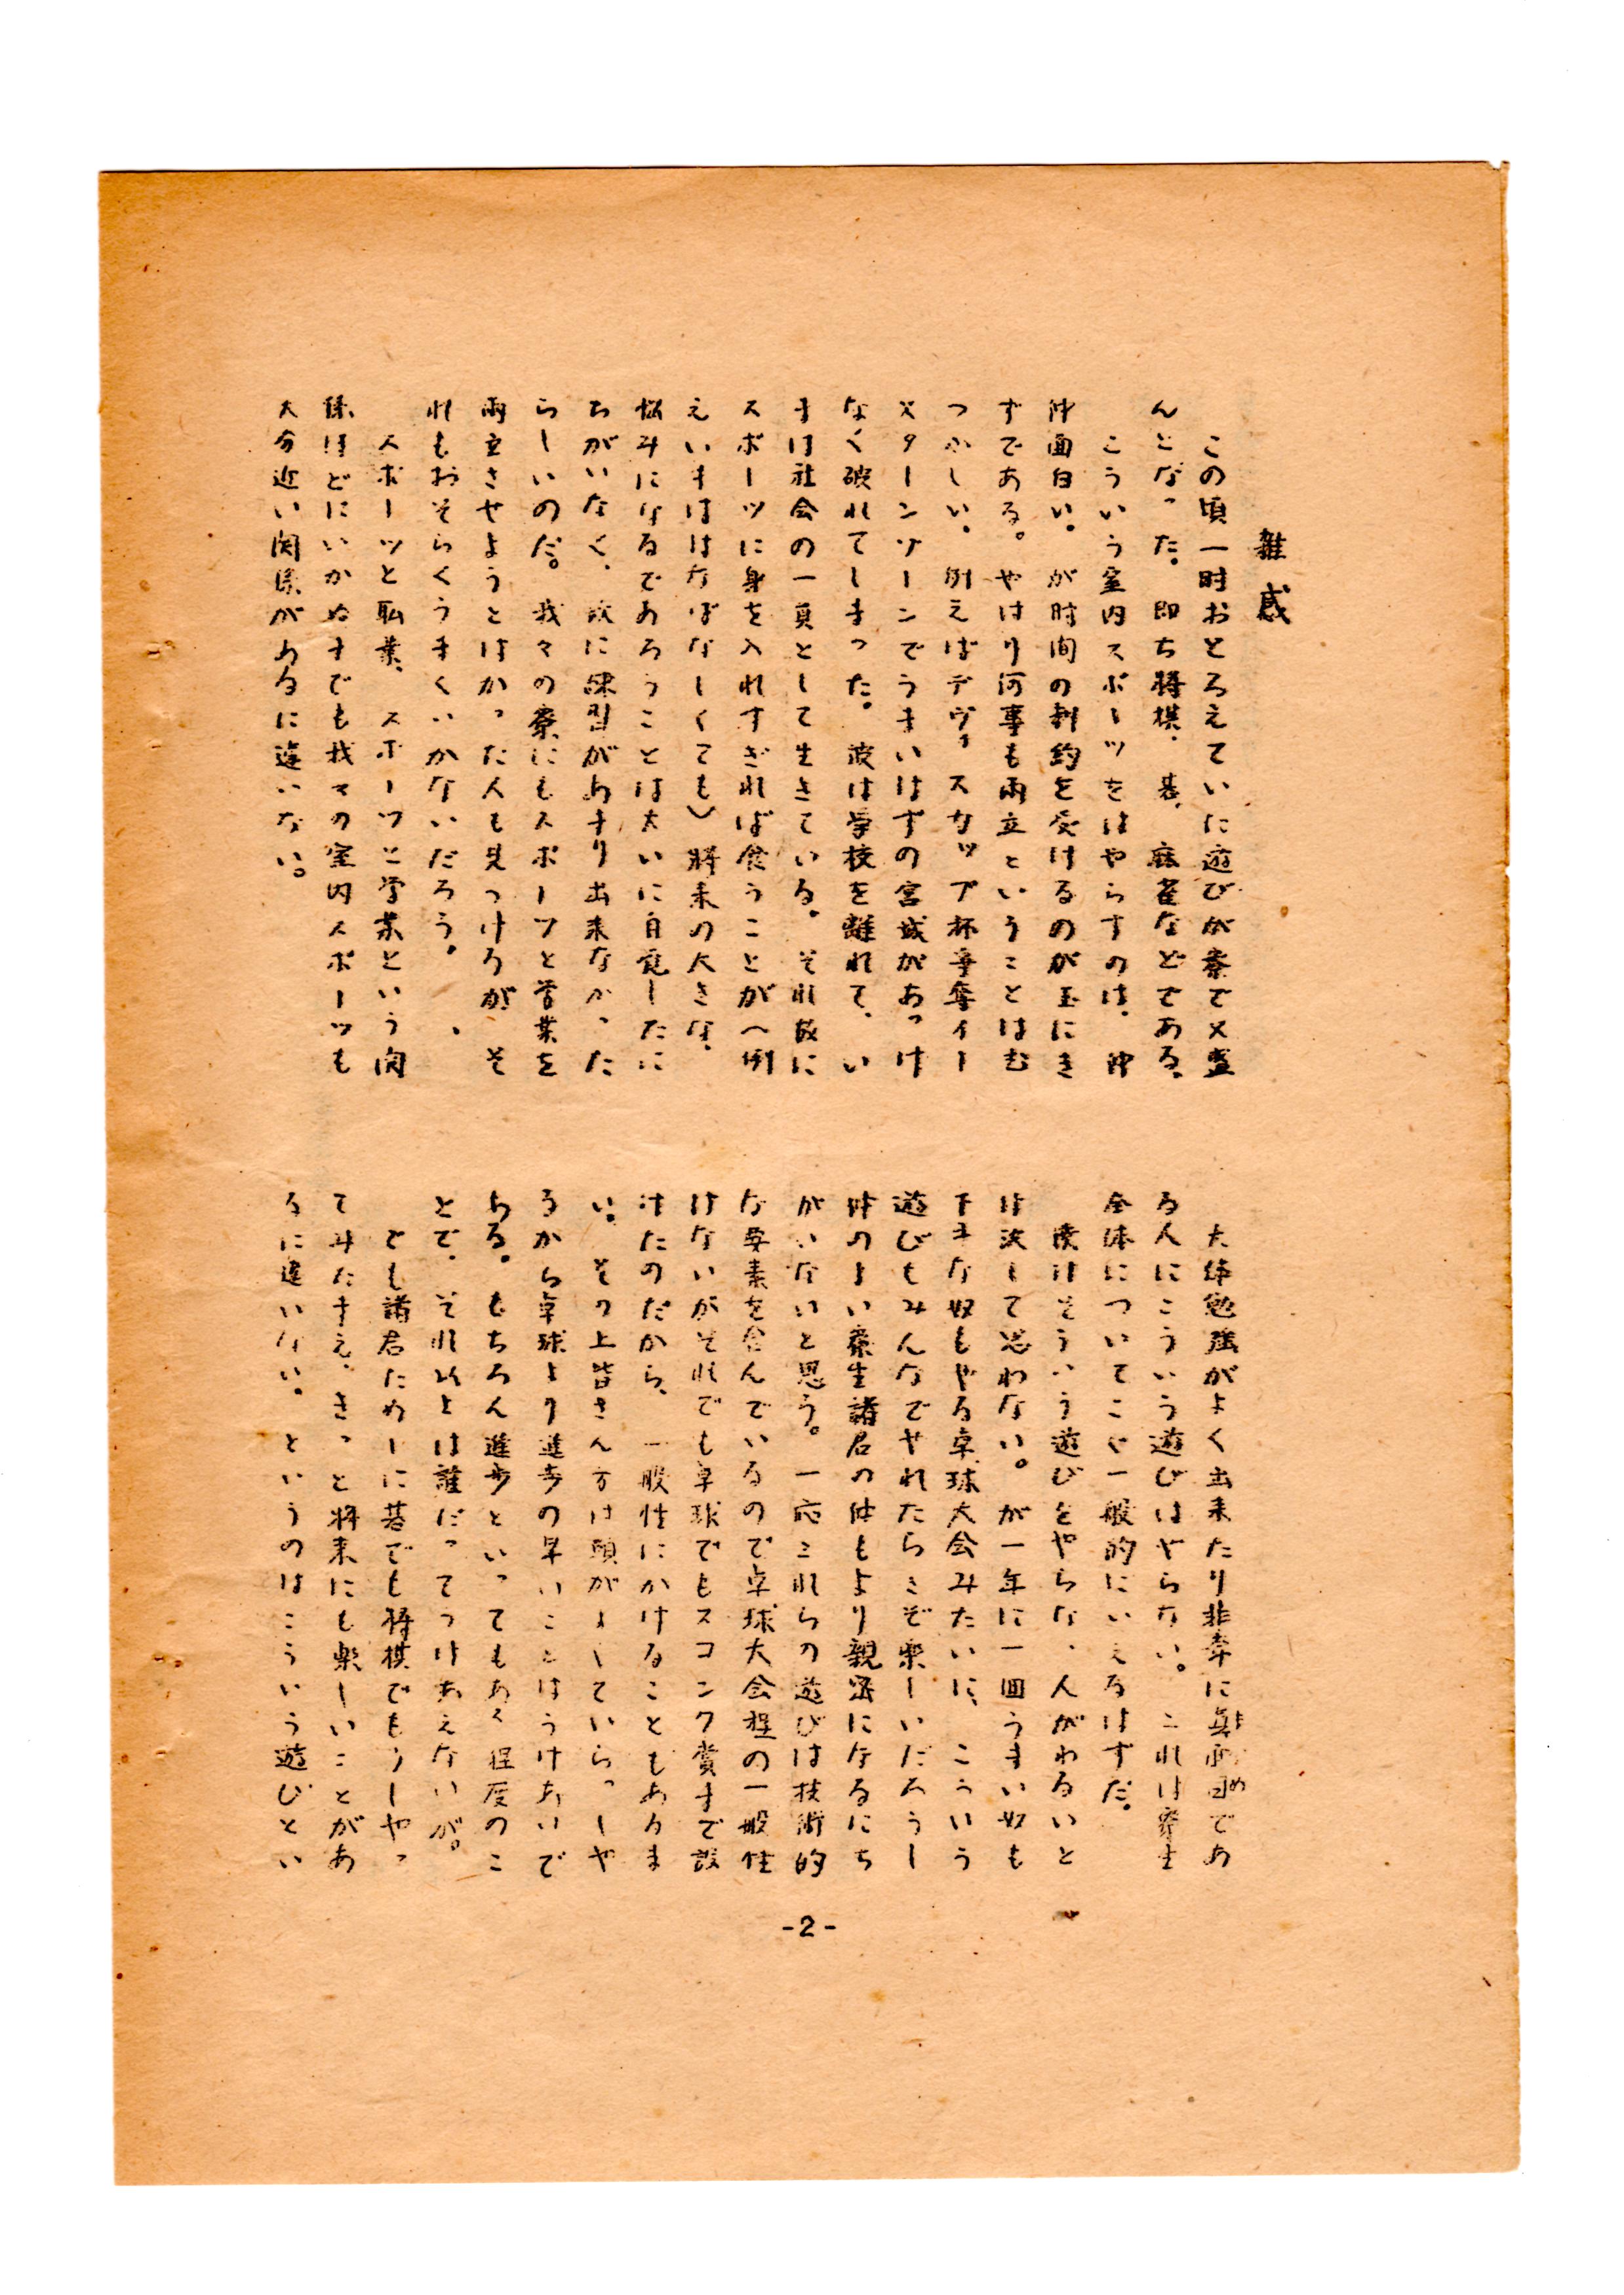 雑感
この頃一時おとろえていに遊びが寮で又盛
んとなった。即ち将棋、碁、麻雀などである。
こういう室内スポーツをはやらすのは、仲
仲面白い。が時間の制約を受けるのが玉にき
ずである。やはり何事も両立ということはむ
つかしい。例えばデヴィスカップ杯争奪イー
スターンゾーンでうまいはずの宮城があっけ
なく破れてしまった。彼は学校を離れて、い
まは社会の一員として生きている。それ故に
スポーツに身を入れすぎれば食うことが(例
えいまははなばなしくても)将来の大きな、
悩みになるであろうことは大いに自覚したに
ちがいなく、故に練習があまり出来なかった
らしいのだ。我々の寮にもスポーツと学業を
両立させようとはかった人も見つけろが そ
れもおそらくうまくいかないだろう。
スポーツと職業、スポーツと学業という関
係はどにいかぬまでも我々の室内スポーツも
大分近い関係があるに違いない。
大体勉強がよく出来たり非常に真面目であ
る人にこういう遊びはやらない。これは寮生
全体についてごく一般的にいえるはずだ。
僕はそういう遊びをやらない人がわるいと
は決して思わない。が一年に一回うまい奴も
下手な奴もやる卓球大会みたいに、こういう
遊びもみんなでやれたらさぞ楽しいだろうし
仲のよい寮生諸君の仲もより親密になるにち
がいないと思う。一応これらの遊びは技術的
な要素を含んでいるので卓球大会程の一般性
はないがそれでも卓球でもスコンク賞まで設
けたのだから、一般性にかけることもあるま
い。その上皆さん方は頭がよくていらっしゃ
るから卓球より進歩の早いことはうけあいで
ある。もちろん進歩といってもある程度のこ
とで、それ以上は誰だってうけあえないが。
でも諸君ためしに碁でも将棋でもうしやっ
てみたまえ、きっと将来にも楽しいことがあ
るに違いない。というのはこういう遊びとい
-2-